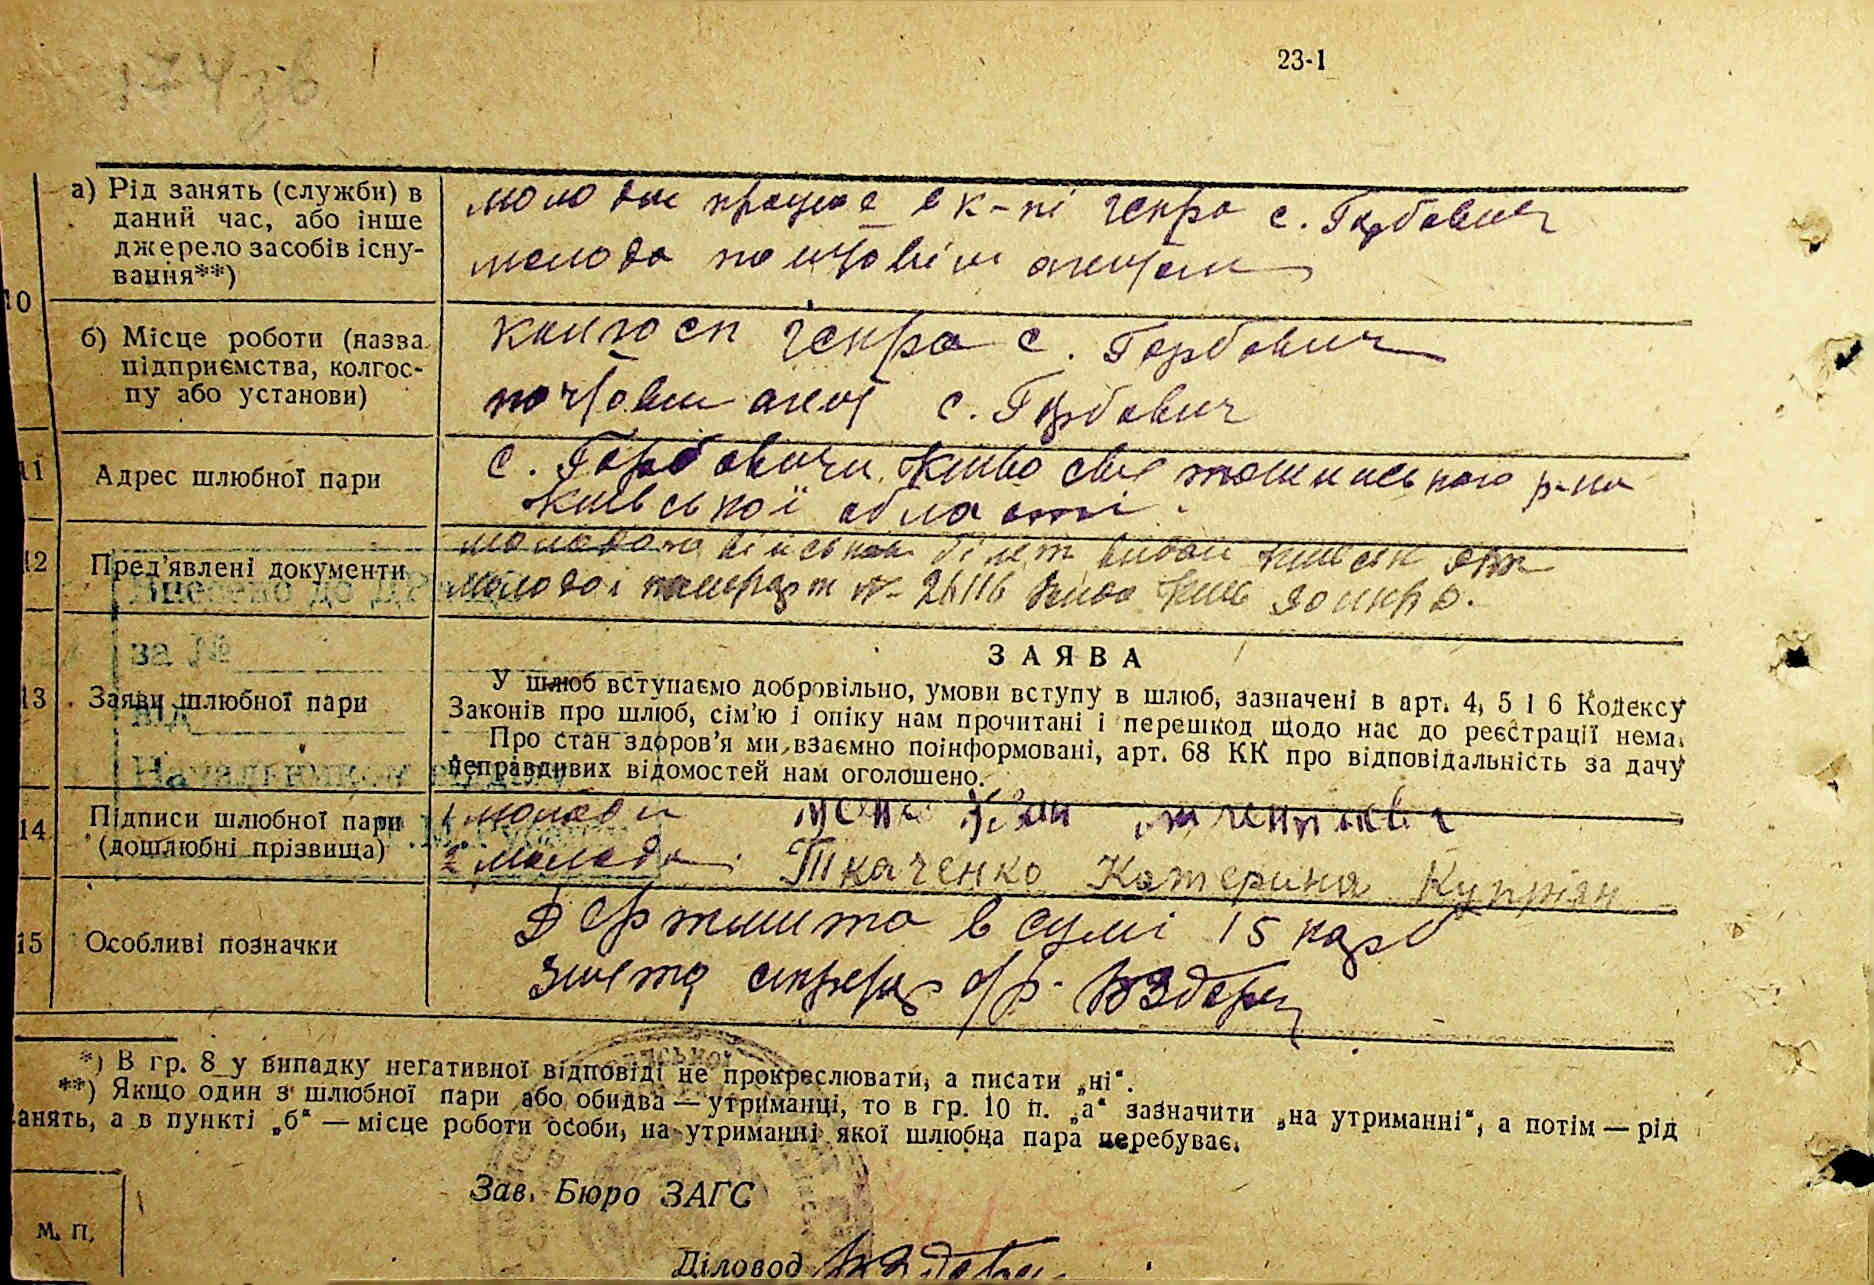 23-1
а) Рід занять (служби) в
даний час, або інше
джерело засобів існу-
вання**)
молодий працює в к-пі с. Горбович
молода поштовим агентом
10
б) Місце роботи (назва
підприємства, колгос-
пу або установи)
колгосп с. Горбович
почтовий агент с. Горбович
11
Адрес шлюбної пари
с. Горбовичи Києво святошинського р-на
Київської області.
12
Пред'явлені документи
молодого військовий білет видан
молодої пашпорт № 26116
за №
від
13
Заяви шлюбної пари
ЗАЯВА
У шлюб вступаємо добровільно, умови вступу в шлюб, зазначені в арт. 4, 5 і 6 Кодексу
Законів про шлюб, сім'ю і опіку нам прочитані і перешкод щодо нас до реєстрації нема.
Про стан здоров'я ми взаємно поінформовані, арт. 68 КК про відповідальність за дачу
неправдивих відомостей нам оголошено.
14
Підписи шлюбної пари
(дошлюбні прізвища)
1 молодий
2 молода: Ткаченко Катерина Купріян
15
Особливі позначки
Держмита в сумі 15 карб
*) В гр. 8 у випадку негативної відповіді не прокреслювати, а писати „ні“.
**) Якщо один з шлюбної пари або обидва — утриманці, то в гр. 10 п. „а“ зазначити „на утриманні“, а потім — рід
занять, а в пункті „б“ — місце роботи особи, на утриманні якої шлюбна пара перебуває.
Зав. Бюро ЗАГС
М. П.
Діловод